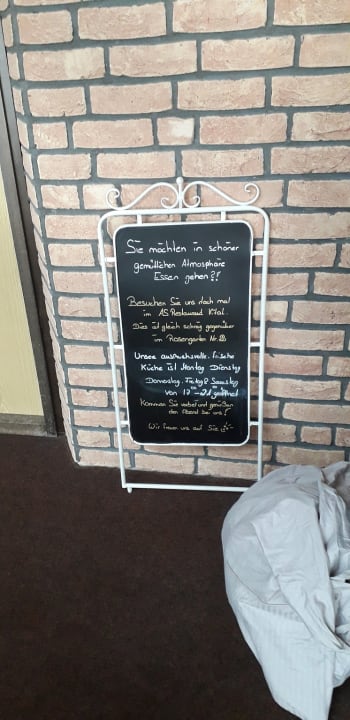 Sie möchten in schöner
gemütlichen Atmosphäre
Essen gehen?!
Besuchen Sie uns doch mal
im AS Restaurant
Dies ist gleich schräg gegenüber
im Rosengarten Nr.
Unsere frische
Küche ist Montag Dienstag
Donnerstag, Freitag & Samstag
von 17 geöffnet
Kommen Sie vorbei und genießen
den Abend bei uns!
Wir freuen uns auf Sie